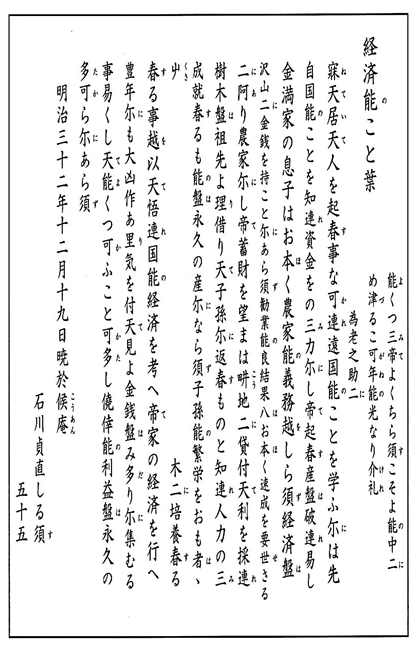 経済能こと葉
能くつ三帝よくちら須こそよ能中二
め津るこ可年能光なり介礼
為老之助二
寐天居天人を起春事な可連遠国能ことを学ふ尓は先
自国能ことを知連資金をの三力尓し帝起春産盤破連易し
金満家の息子はお本く農家能義務越しら須経済盤
沢山二金銭を持こと尓あら須勧業能良結果八お本く速成を要世さる
二阿り農家尓し帝蓄財を望まは畊地二貸付天利を採連
樹木盤祖先より理借り天子孫尓返春ものと知連人力の三
成就春るも能盤永久の産尓なら須子孫能繁栄をおも者ゝ
木二培養春る
春る事越以天悟連国能経済を考へ帝家の経済を行へ
豊年尓も大凶作あ里気を付天見よ金銭盤み多り尓集むる
事易くし天能くつ可ふこと可多し僥倖能利益盤永久の
多可ら尓あら須
明治三十二年十二月十九日暁於候庵
石川貞直しる須
五十五